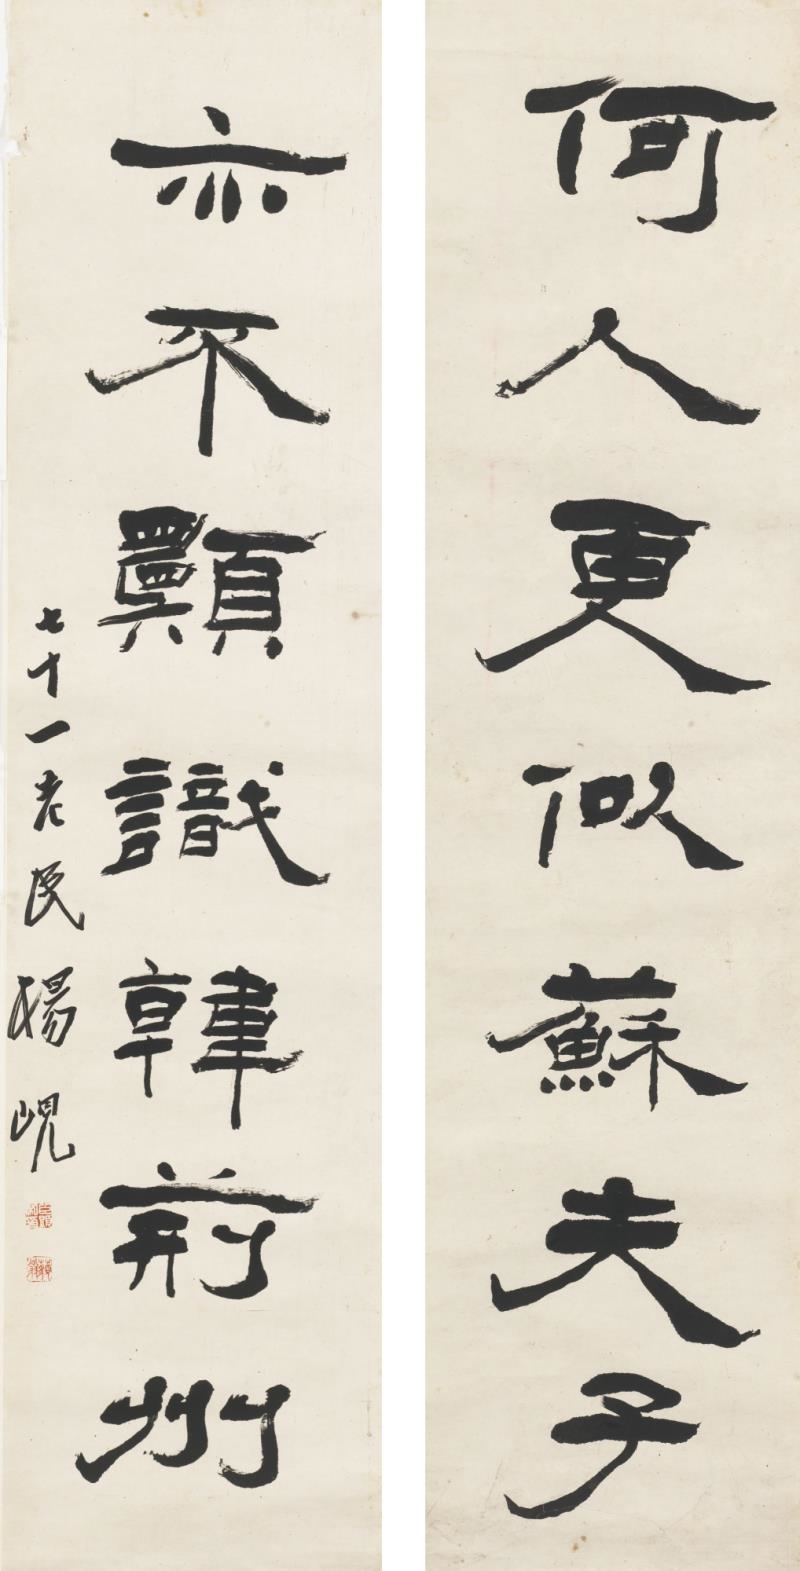 何人更似蘇夫子
亦不顠識韓荊州
七十一老民楊峴